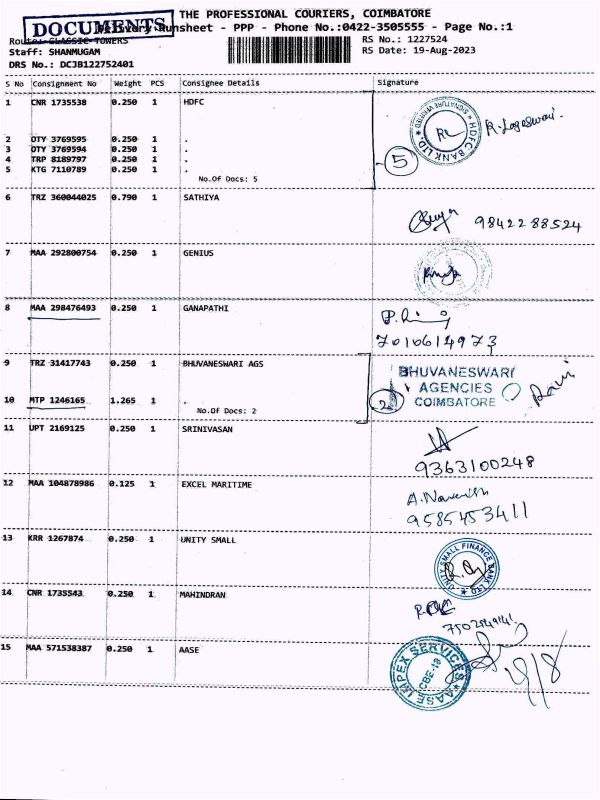 THE PROFESSIONAL COURIERS, COIMBATORE
DOCUMENTS
Delivery Runsheet - PPP - Phone No.:0422-3505555 - Page No.:1
Route: CLASSIC TOWERS
Staff: SHANMUGAM
DRS No.: DCJB122752401
RS No.: 1227524
RS Date: 19-Aug-2023
S No Consignment No Weight PCS Consignee Details Signature
1 CNR 1735538 0.250 1 HDFC
HDFC BANK LTD. * SIGNATURE VERIFIED *
2 OTY 3769595 0.250 1 .
3 OTY 3769594 0.250 1 .
4 TRP 8189797 0.250 1 .
5 KTG 7110789 0.250 1 .
No.Of Docs: 5
5
6 TRZ 360044025 0.790 1 SATHIYA
9842288524
7 MAA 292800754 0.250 1 GENIUS
8 MAA 298476493 0.250 1 GANAPATHI
7010614973
9 TRZ 31417743 0.250 1 BHUVANESWARI AGS
BHUVANESWARI
AGENCIES
COIMBATORE
10 MTP 1246165 1.265 1 .
No.Of Docs: 2
2
11 UPT 2169125 0.250 1 SRINIVASAN
9363100248
12 MAA 104878986 0.125 1 EXCEL MARITIME
9585453411
13 KRR 1267874 0.250 1 UNITY SMALL
UNITY SMALL FINANCE BANK LTD
14 CNR 1735543 0.250 1 MAHINDRAN
15 MAA 571538387 0.250 1 AASE
AASE IMPEX SERVICES